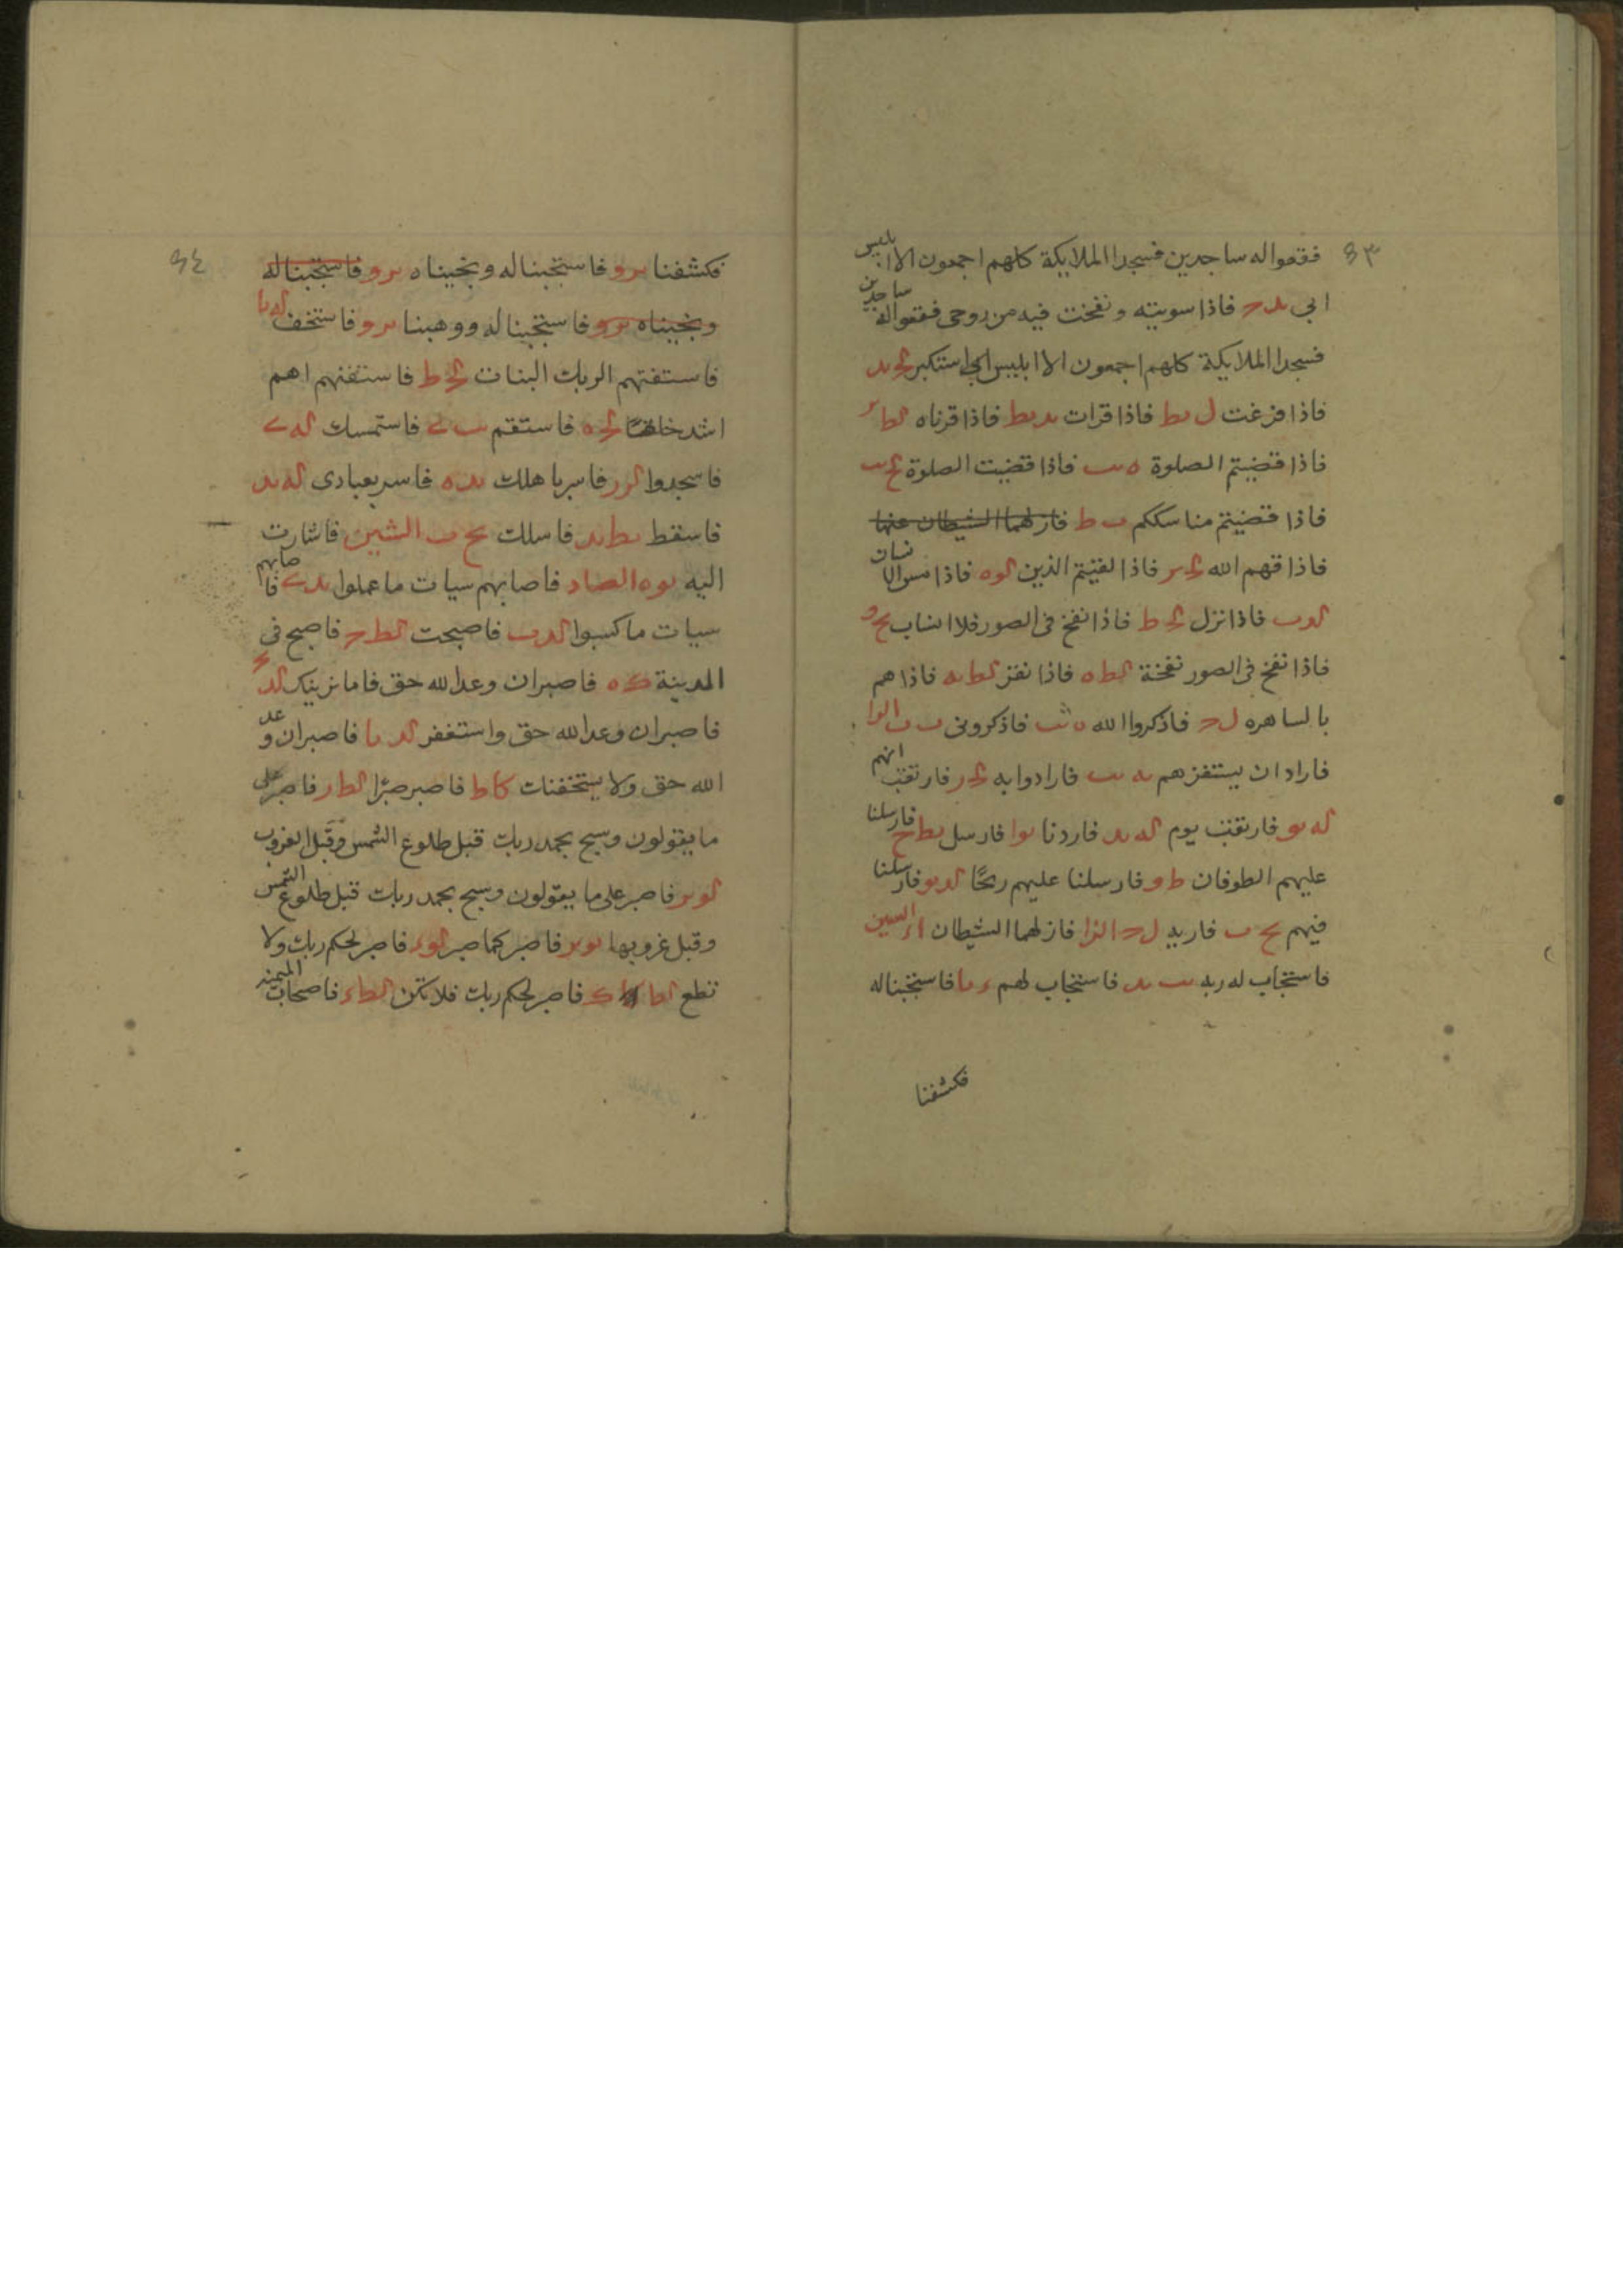 ٩٣
فقعوا له ساجدين فسجد الملايكة كلهم اجمعون الا ابليس
ابى ىد ح فاذا سويته ونفخت فيه من روحى فقعوا له ساجدين
فسجد الملايكة كلهم اجمعون الا ابليس استكبر ىد
فاذا فرغت ل ىط فاذا قرات ىد ىط فاذا قرناه لط
فاذا قضيتم الصلوة ه ىب فاذا قضيت الصلوة
فاذا قضيتم مناسككم ب ط فازلهما الشيطان عنها
فاذاقهم الله فاذا لقيتم الذين لو ه فاذا مس الانسان
لد ب فاذا نزل ط فاذا نفخ فى الصور فلا انساب
فاذا نفخ فى الصور نفخة لط ه فاذا نقر لط ىه فاذا هم
بالساهره ل ح فاذكروا الله ه ىب فاذكرونى ب ب الرا
فاراد ان يستفزهم ىه ىب فارادوا به فارتقب انهم
له ىو فارتقب يوم له ىد فاردنا ىوا فارسل ىط ح فارسلنا
عليهم الطوفان ط و فارسلنا عليهم ريحًا لد ىو فارسلنا
فيهم ىح ب فاريه ل ح الزا فازلهما الشيطان السين
فاستجاب له ربه ىب ىد فاستجاب لهم فاستجبنا له
فكشفنا
٩٤
فكشفنا ىر و فاستجبنا له ونجيناه ىر و فاستجبنا له
ونجيناه ىر و فاستجبنا له ووهبنا ىر و فاستخف له ىا
فاستفتهم الربك البنات ط فاستفتهم اهم
اشد خلقا ه فاستقم فاستمسك
فاسجدوا فاسر باهلك ىد ه فاسر بعبادى له ىد
فاسقط ىط ىد فاسلك ىح ب الشين فاشارت
اليه ىو ه الصاد فاصابهم سيات ما عملوا فاصابهم
سيات ما كسبوا لد ب فاصبحت لط ح فاصبح فى
المدينة ك ه فاصبر ان وعد الله حق فاما نرينك لد
فاصبر ان وعد الله حق واستغفر لد ىا فاصبر ان وعد
الله حق ولا يستخفنك كا ط فاصبر صبرًا لط ر فاصبر على
ما يقولون وسبح بحمد ربك قبل طلوع الشمس وقبل الغروب
لو ىر فاصبر على ما يقولون وسبح بحمد ربك قبل طلوع الشمس
وقبل غروبها ىو ىر فاصبر كما صبر فاصبر لحكم ربك ولا
تطع لط ك فاصبر لحكم ربك فلا تكن لط فاصحاب الميمنه